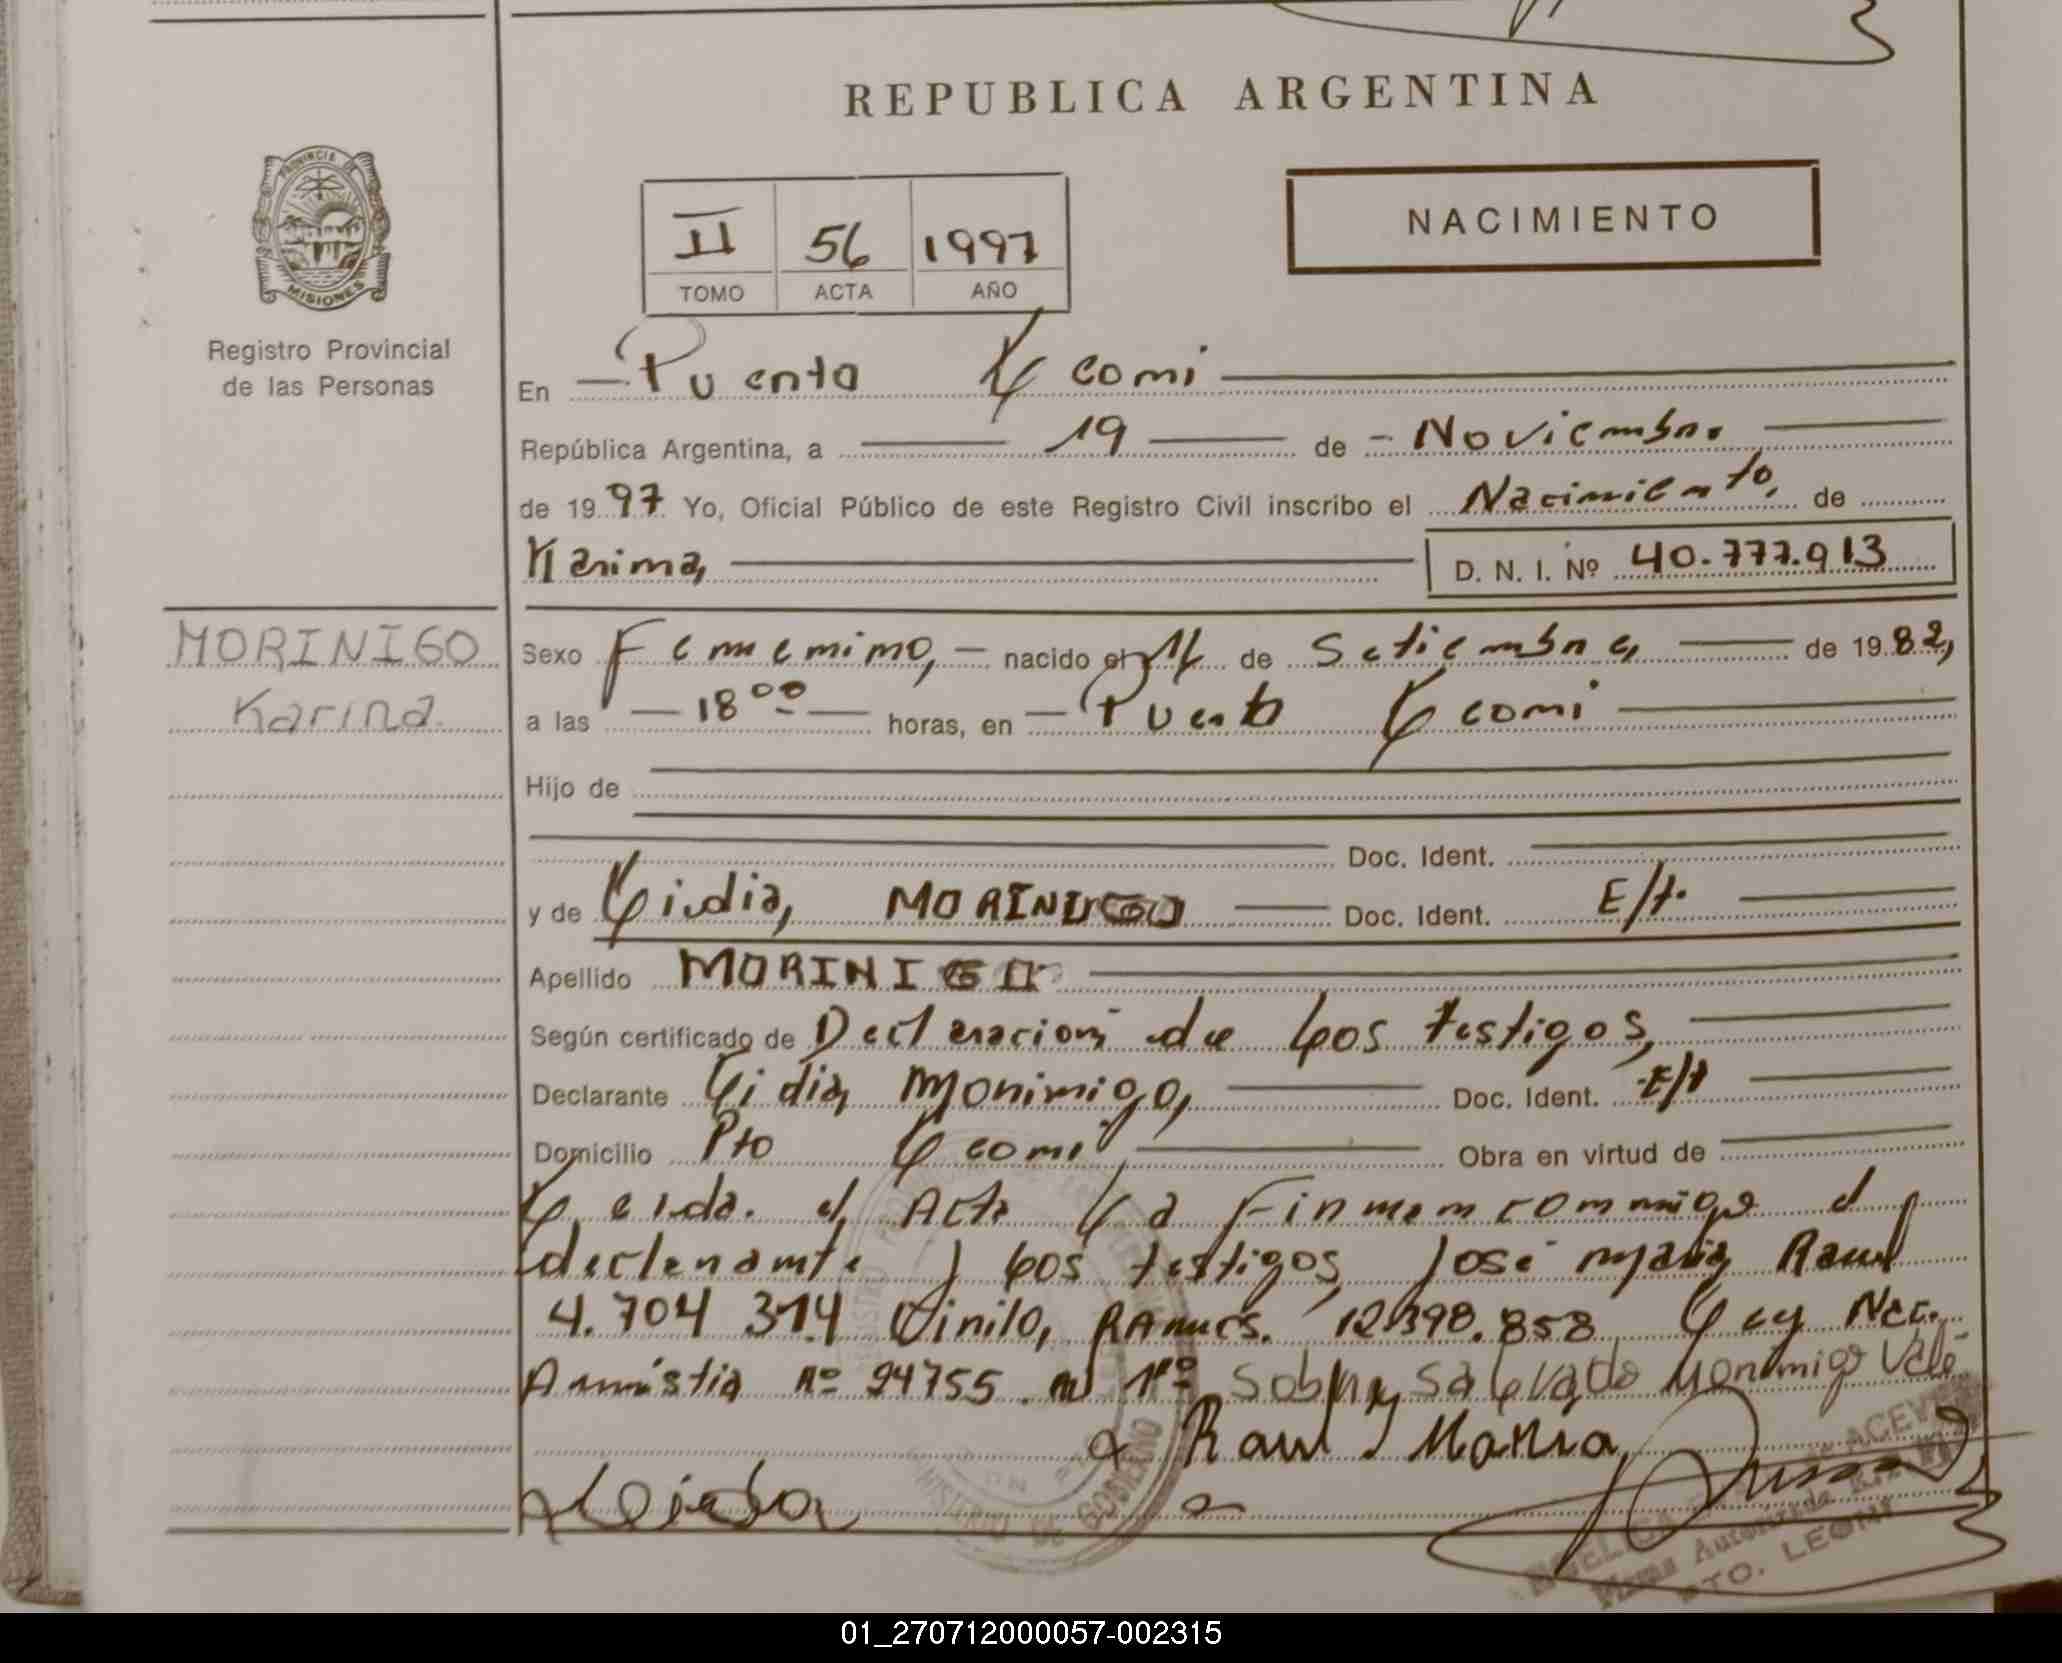 REPUBLICA ARGENTINA
PROVINCIA DE MISIONES
Registro Provincial
de las Personas
II 56 1997
TOMO ACTA AÑO
NACIMIENTO
En Puerto Leoni
República Argentina, a 19 de Noviembre
de 1997 Yo, Oficial Público de este Registro Civil inscribo el Nacimiento, de
Karina, D. N. I. Nº 40.777.913
MORINIGO
Karina
Sexo Femenino, nacido el de Setiembre, de 1982,
a las 18 00 horas, en Puerto Leoni
Hijo de
Doc. Ident.
y de Lidia, MORINIGO Doc. Ident. E/t.
Apellido MORINIGO
Según certificado de Declaración de Los testigos,
Declarante Lidia Morinigo, Doc. Ident. E/t
Domicilio Pto Leoni Obra en virtud de
Leida el Acta La Firman conmigo el
declarante y Los testigos, José Maria Raul
4.704 314 Ramirs. 12.398.858 Ley Nac.
Amnistia nº 24755. Morinigo Vale
Raul Maria
REGISTRO
MINISTERIO DE GOBIERNO
ACEVEDO
Firma Autorizada
PTO. LEONI
01_270712000057-002315